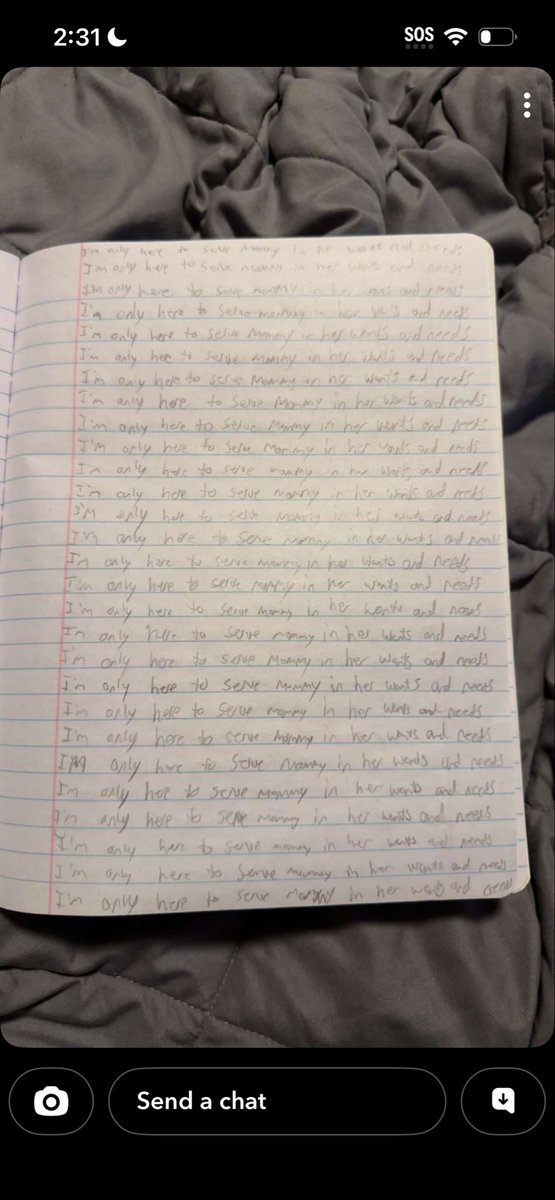 2:31
SOS
I'm only here to serve mommy in her wants and needs
I'm only here to serve mommy in her wants and needs
IM only here to serve mommy in her wants and needs
I'm only here to serve mommy in her wants and needs
I'm only here to serve mommy in her wants and needs
I'm only here to serve mommy in her wants and needs
I'm only here to serve Mommy in her wants and needs
I'm only here to serve Mommy in her wants and needs
I'm only here to serve Mommy in her wants and needs
I'm only here to serve Mommy in her wants and needs
I'm only here to serve mommy in her wants and needs
I'm only here to serve mommy in her wants and needs
I'M only here to serve mommy in her wants and needs
I'm only here to serve mommy in her wants and needs
I'm only here to serve mommy in her wants and needs
I'm only here to serve mommy in her wants and needs
I'm only here to serve mommy in her wants and needs
I'm only here to serve mommy in her wants and needs
I'm only here to serve Mommy in her wants and needs
I'm only here to serve Mommy in her wants and needs
I'm only here to serve mommy in her wants and needs
I'm only here to serve Mommy in her wants and needs
I'M only here to serve Mommy in her wants and needs
I'm only here to serve mommy in her wants and needs
I'm only here to serve mommy in her wants and needs
I'm only here to serve mommy in her wants and needs
I'm only here to serve mommy in her wants and needs
I'm only here to serve mommy in her wants and needs
Send a chat